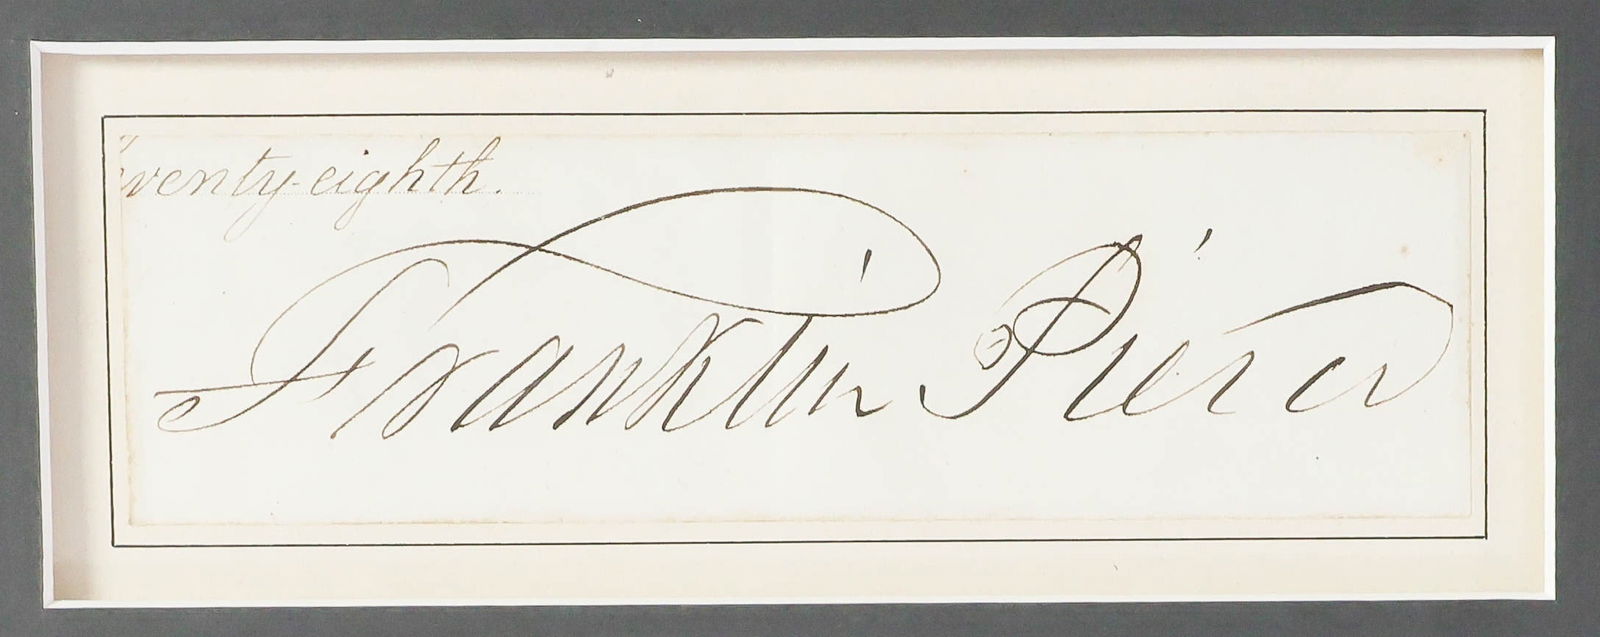 wenty-eighth.
Franklin Pierce